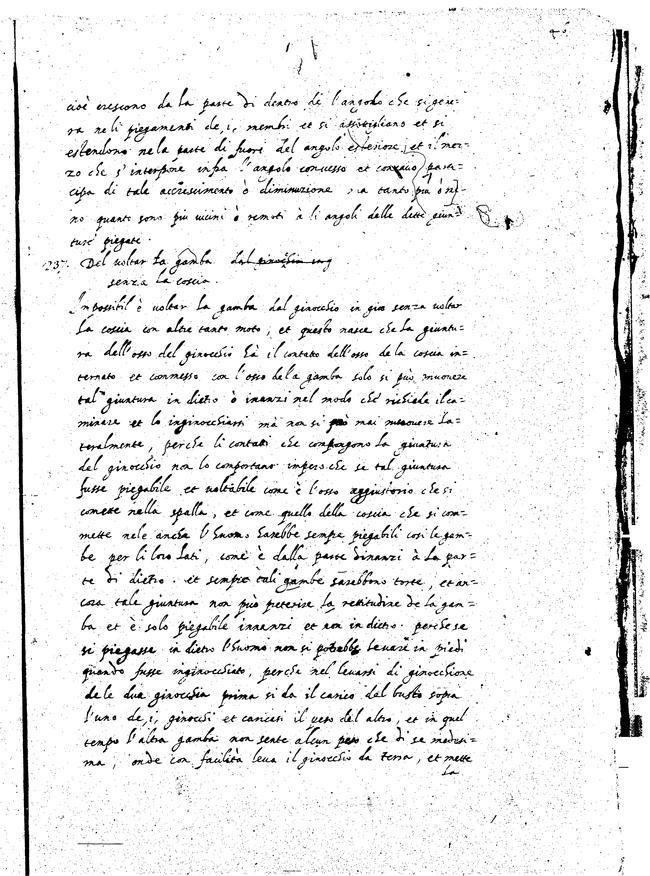 46
cioè crescono da la parte di dentro de l'angolo che si gene=
ra neli piegamenti de, i, membri et si assotigliano et si
estendono nela parte di fuori del angolo esteriore, et il mez=
zo che s'interpone infra l'angolo convesso et concavo parti=
cipa di tale accrescimento ò diminuzione, ma tanto più ò m=
no quanto sono più vicini ò remoti à li angoli delle dette giun=
ture piegate.
237. Del voltar la gamba dal ginochio
senza la coscia.
Impossibil è voltar la gamba dal ginocchio in giù senza voltar
la coscia con altre tanto moto, et questo nasce che la giuntu=
ra dell'osso del ginocchio hà il contatto dell'osso de la coscia in=
ternato et commesso con l'osso dela gamba solo si può muovere
tal giuntura in dietro ò inanzi nel modo che richiede il ca=
minare et lo inginocchiarsi mà non si può mai muovere la=
teralmente, perche li contatti che compongono la giuntura
del ginocchio non lo comportano imperoche se tal giuntura
fusse piegabile et voltabile come è l'osso aggiustorio che si
comette nella spalla, et come quello della coscia che si com=
mette nele anche l'huomo harebbe sempre piegabili così le gam=
be per li loro lati, come è dalla parte dinanzi à la par=
te di dietro. et sempre tali gambe sarebbono torte, et an=
cora tale giuntura non può preterire la rettitudine de la gam=
ba et è solo piegabile innanzi et non in dietro. perche se
si piegasse in dietro l'huomo non si potrebbe levare in piedi
quando fusse inginocchiato, perche nel levarsi di ginocchione
de le due ginocchia prima si da il carico del busto sopra
l'uno de, i, ginocchi et caricasi il peso del altro, et in quel
tempo l'altra gamba non sente alcun peso che di se medesi=
ma, onde con facilità leva il ginocchio da terra, et mette
la